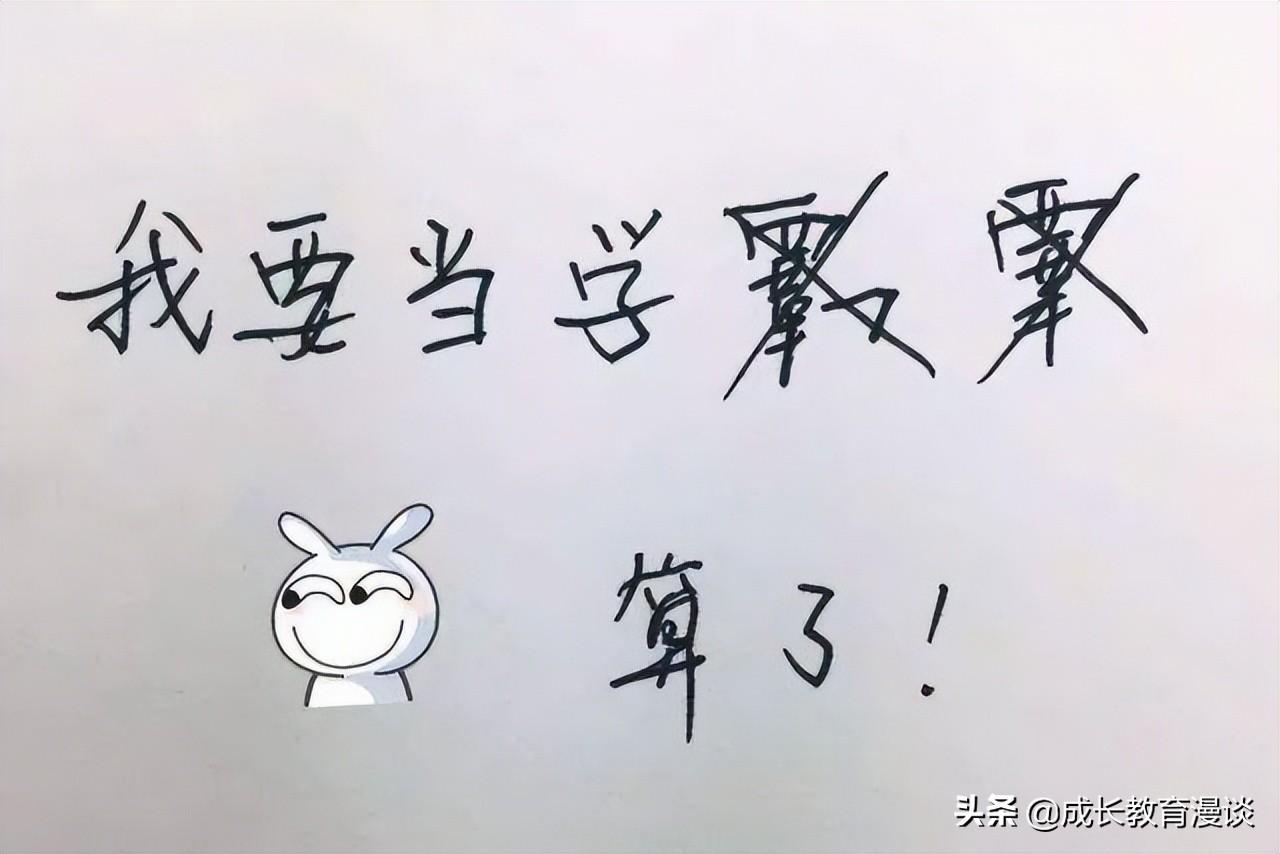 我要当学
算了!
头条 @成长教育漫谈